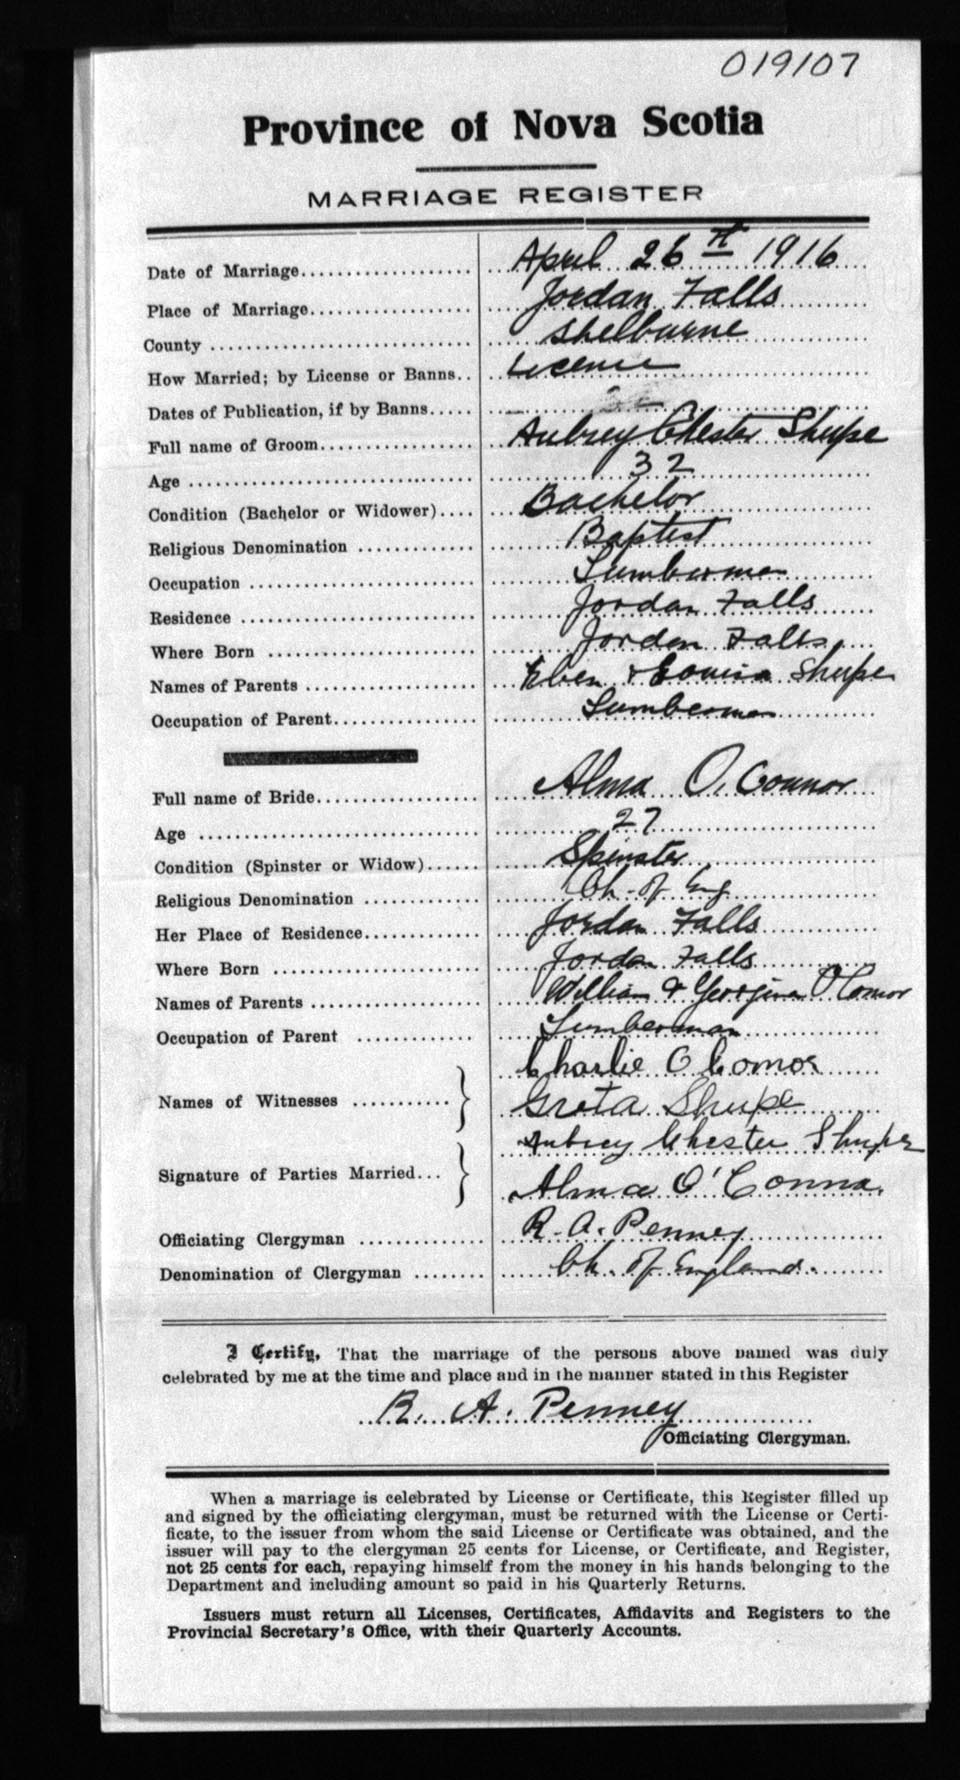 019107
Province of Nova Scotia
MARRIAGE REGISTER
Date of Marriage.................... April 26th 1916
Place of Marriage.................. Jordan Falls
County .............................. Shelburne
How Married; by License or Banns.. License
Dates of Publication, if by Banns.....
Full name of Groom.................. Aubrey Chester Shupe
Age ................................ 32
Condition (Bachelor or Widower).... Bachelor
Religious Denomination ............. Baptist
Occupation .......................... Lumberman
Residence ........................... Jordan Falls
Where Born ........................ Jordan Falls
Names of Parents ................... Eben & Louisa Shupe
Occupation of Parent................ Lumberman
Full name of Bride.................. Alma O. Connor
Age ................................ 27
Condition (Spinster or Widow)...... Spinster
Religious Denomination ............. Ch. of Eng
Her Place of Residence............. Jordan Falls
Where Born ........................ Jordan Falls
Names of Parents ................... William & Georgina O'Connor
Occupation of Parent .............. Lumberman
Names of Witnesses ........... } Charlie O Connor
Greta Shupe
Signature of Parties Married... } Aubrey Chester Shupe
Alma O'Connor
Officiating Clergyman .............. R. A. Penney
Denomination of Clergyman ........ Ch. of England.
I Certify, That the marriage of the persons above named was duly
celebrated by me at the time and place and in the manner stated in this Register
R. A. Penney
Officiating Clergyman.
When a marriage is celebrated by License or Certificate, this Register filled up
and signed by the officiating clergyman, must be returned with the License or Certi-
ficate, to the issuer from whom the said License or Certificate was obtained, and the
issuer will pay to the clergyman 25 cents for License, or Certificate, and Register,
not 25 cents for each, repaying himself from the money in his hands belonging to the
Department and including amount so paid in his Quarterly Returns.
Issuers must return all Licenses, Certificates, Affidavits and Registers to the
Provincial Secretary's Office, with their Quarterly Accounts.